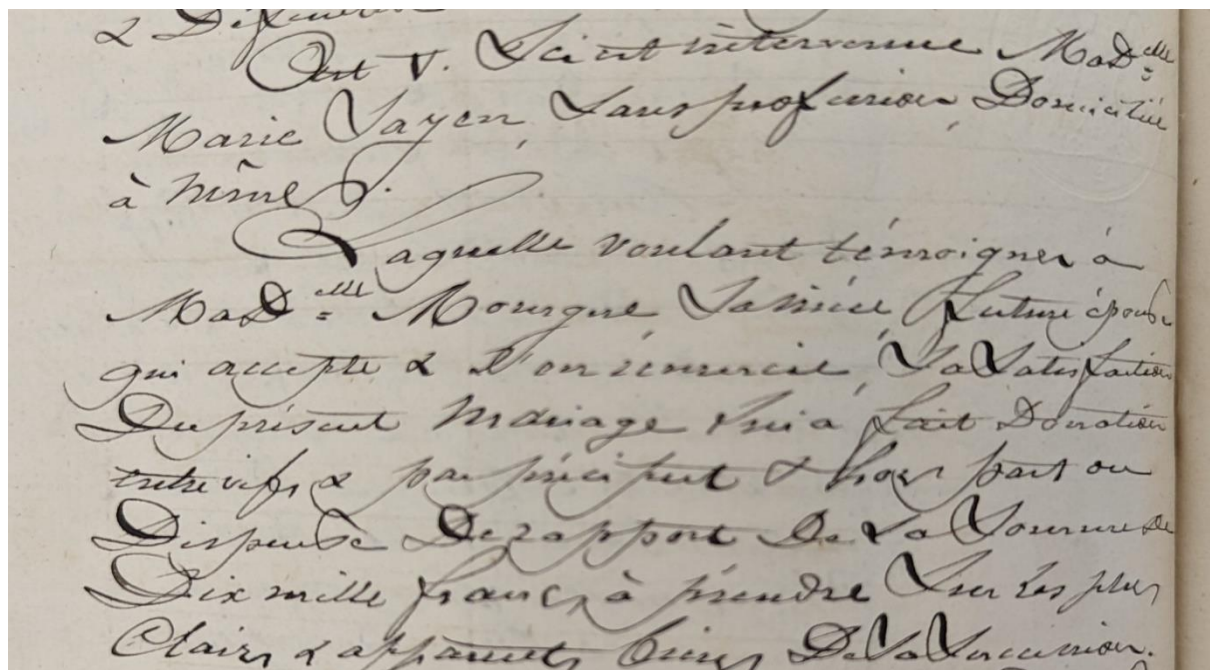 & D
Art V. Est intervenue Mad.elle
Marie Sayen, sans profession, Domiciliée
à même
Laquelle voulant témoigner à
Mad.elle Mourgue, sa nièce, future épouse
qui accepte & l'en remercie, sa satisfaction
Du présent mariage lui a fait Donation
entre vifs & par préciput & hors part ou
Dispense De rapport De la Somme De
Dix mille francs à prendre Sur les plus
Clairs & apparents biens De sa Succession.